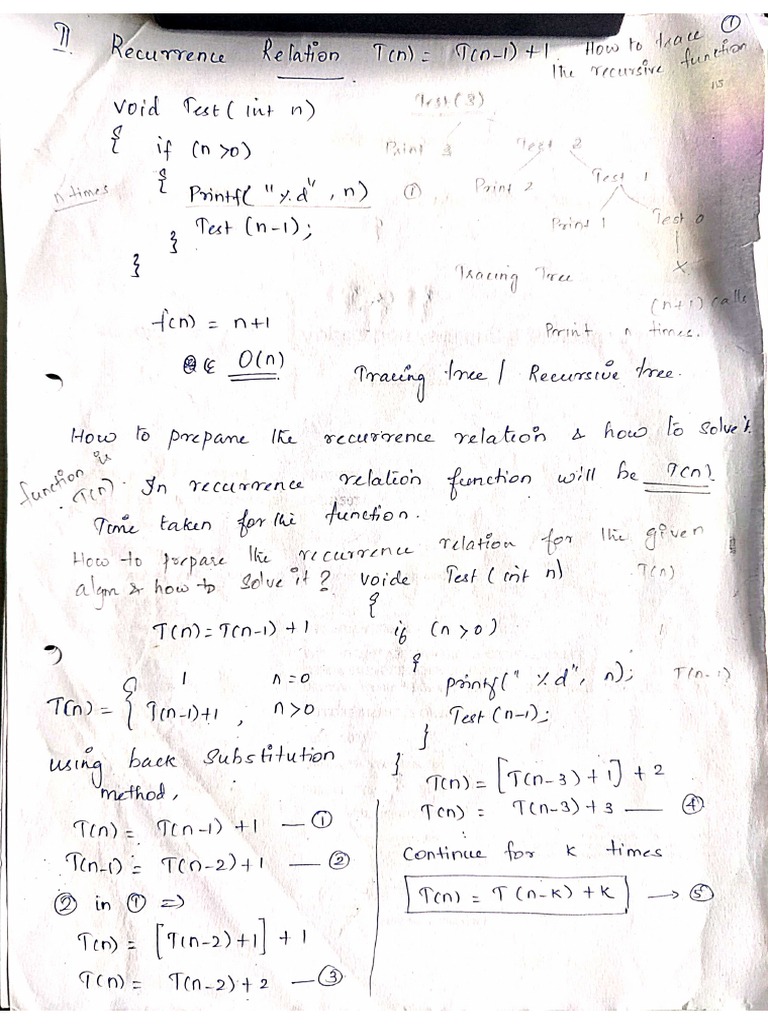 ①
II. Recurrence Relation T(n) = T(n-1)+1 How to trace
the recursive function
void Test( int n)
{ if (n >0)
n times { Printf( "%d", n) ①
Test (n-1);
}
}
Test(3)
Print 3 Test 2
Print 2 Test 1
Print 1 Test 0
×
Tracing Tree
(n+1) calls
Print n times.
f(n) = n+1
O(n)
Tracing tree / Recursive tree.
How to prepane the recurrence relation & how to solve it.
function is T(n). In recurrence relation function will be T(n).
Time taken for the function.
How to prepare the recurrence relation for the given
algm & how to solve it? voide Test ( int n) T(n)
{
T(n) = T(n-1) +1 if (n >0)
{
printf(" %d", n); T(n-1)
Test (n-1);
}
}
T(n) = { 1 n=0
T(n-1)+1 , n>0
using back substitution
method,
T(n) = T(n-1) +1 — ①
T(n-1) = T(n-2)+1 — ②
② in ① =>
T(n) = [T(n-2)+1] + 1
T(n) = T(n-2)+2 — ③
T(n) = [T(n-3) + 1] + 2
T(n) = T(n-3)+3 — ④
continue for K times
T(n) = T (n-K) + K → ⑤